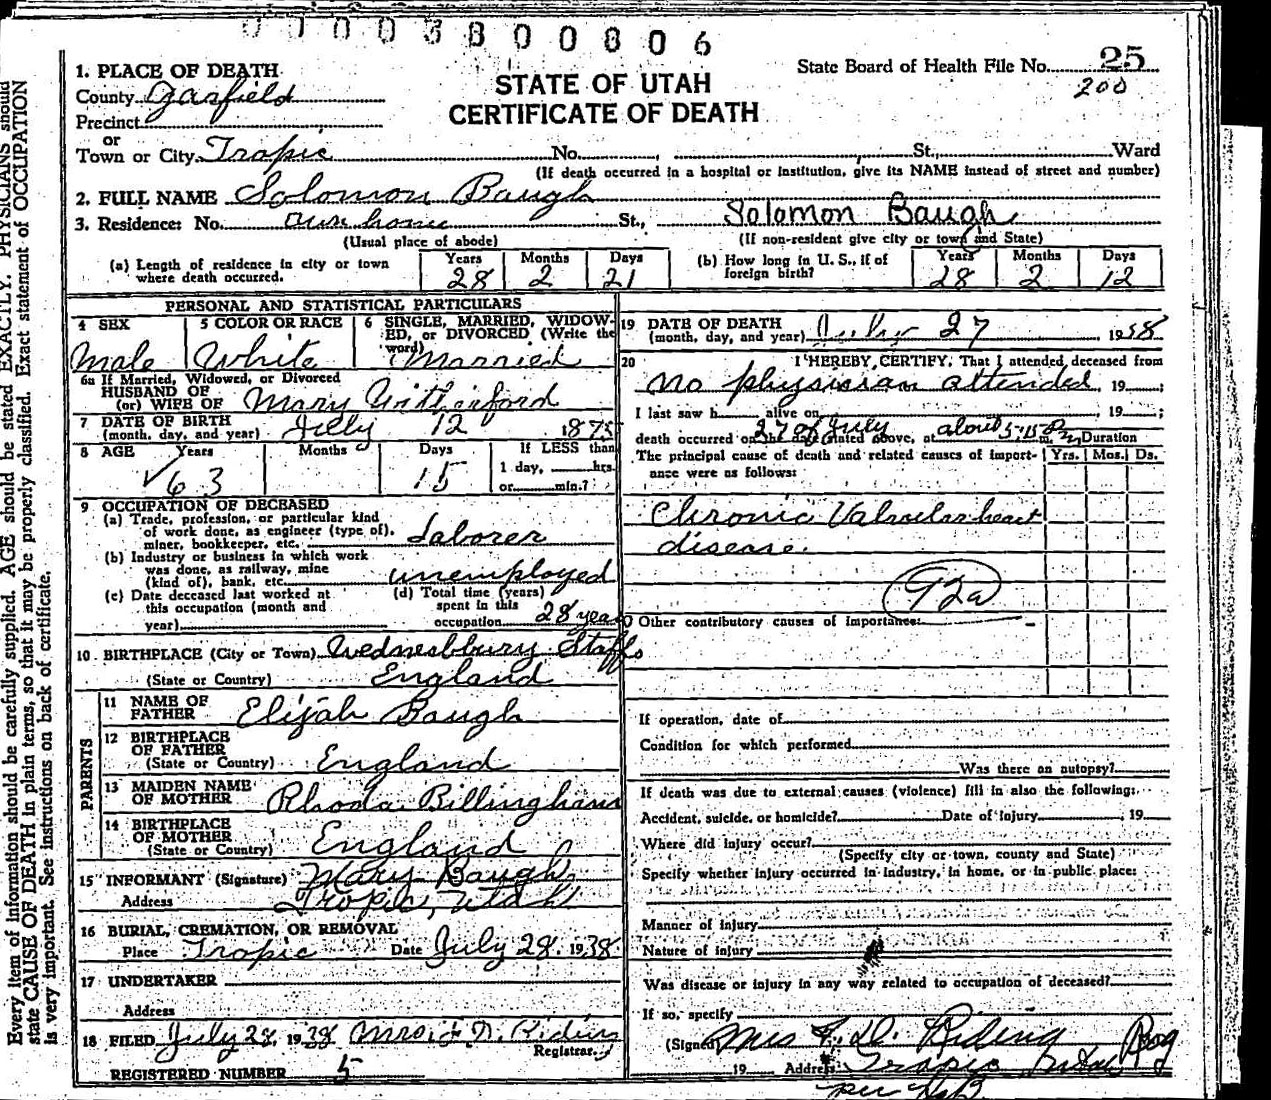 07003800806
State Board of Health File No. 25
200
STATE OF UTAH
CERTIFICATE OF DEATH
1. PLACE OF DEATH
County Garfield
Precinct
or
Town or City Tropic No. , St., Ward
(If death occurred in a hospital or institution, give its NAME instead of street and number)
2. FULL NAME Solomon Baugh
3. Residence: No. own home St., Solomon Baugh
(Usual place of abode) (If non-resident give city or town and State)
(a) Length of residence in city or town where death occurred. Years 28 Months 2 Days 21
(b) How long in U. S., if of foreign birth? Years 28 Months 2 Days 12
PERSONAL AND STATISTICAL PARTICULARS
4 SEX Male
5 COLOR OR RACE White
6 SINGLE, MARRIED, WIDOWED, or DIVORCED (Write the word) Married
6a If Married, Widowed, or Divorced
HUSBAND OF
(or) WIFE OF Mary Witherford
7 DATE OF BIRTH
(month, day, and year) July 12 1875
8 AGE Years 63 Months Days 15 If LESS than
1 day, hrs.
or min.?
9 OCCUPATION OF DECEASED
(a) Trade, profession, or particular kind
of work done, as engineer (type of),
miner, bookkeeper, etc. Laborer
(b) Industry or business in which work
was done, as railway, mine
(kind of), bank, etc. unemployed
(c) Date deceased last worked at
this occupation (month and
year)
(d) Total time (years)
spent in this
occupation 28 years
10 BIRTHPLACE (City or Town) Wednesbbury Staffs
(State or Country) England
PARENTS
11 NAME OF
FATHER Elijah Baugh
12 BIRTHPLACE
OF FATHER
(State or Country) England
13 MAIDEN NAME
OF MOTHER Rhoda Billingham
14 BIRTHPLACE
OF MOTHER
(State or Country) England
15 INFORMANT (Signature) Mary Baugh
Address Tropic, Utah
16 BURIAL, CREMATION, OR REMOVAL
Place Tropic Date July 28. 1938.
17 UNDERTAKER
Address
18 FILED July 28, 1938 Mrs. F. D. Riding
Registrar.
REGISTERED NUMBER 5
19 DATE OF DEATH
(month, day, and year) July 27 1938
20 I HEREBY CERTIFY, That I attended deceased from
No physician attended, 19 ;
I last saw h alive on , 19 ;
27 of July about 5:15 P
death occurred on the date stated above, at m. Duration
The principal cause of death and related causes of importance were as follows: Yrs. Mos. Ds.
Chronic Valvular heart
disease.
92a
Other contributory causes of importance:
If operation, date of
Condition for which performed
Was there an autopsy?
If death was due to external causes (violence) fill in also the following:
Accident, suicide, or homicide? Date of injury , 19
Where did injury occur?
(Specify city or town, county and State)
Specify whether injury occurred in industry, in home, or in public place:
Manner of injury
Nature of injury
Was disease or injury in any way related to occupation of deceased?
If so, specify
(Signed) Mrs F. D. Riding Reg
19 Address Tropic Utah
per
Every item of information should be carefully supplied. AGE should be stated EXACTLY. PHYSICIANS should
state CAUSE OF DEATH in plain terms, so that it may be properly classified. Exact statement of OCCUPATION
is very important. See instructions on back of certificate.